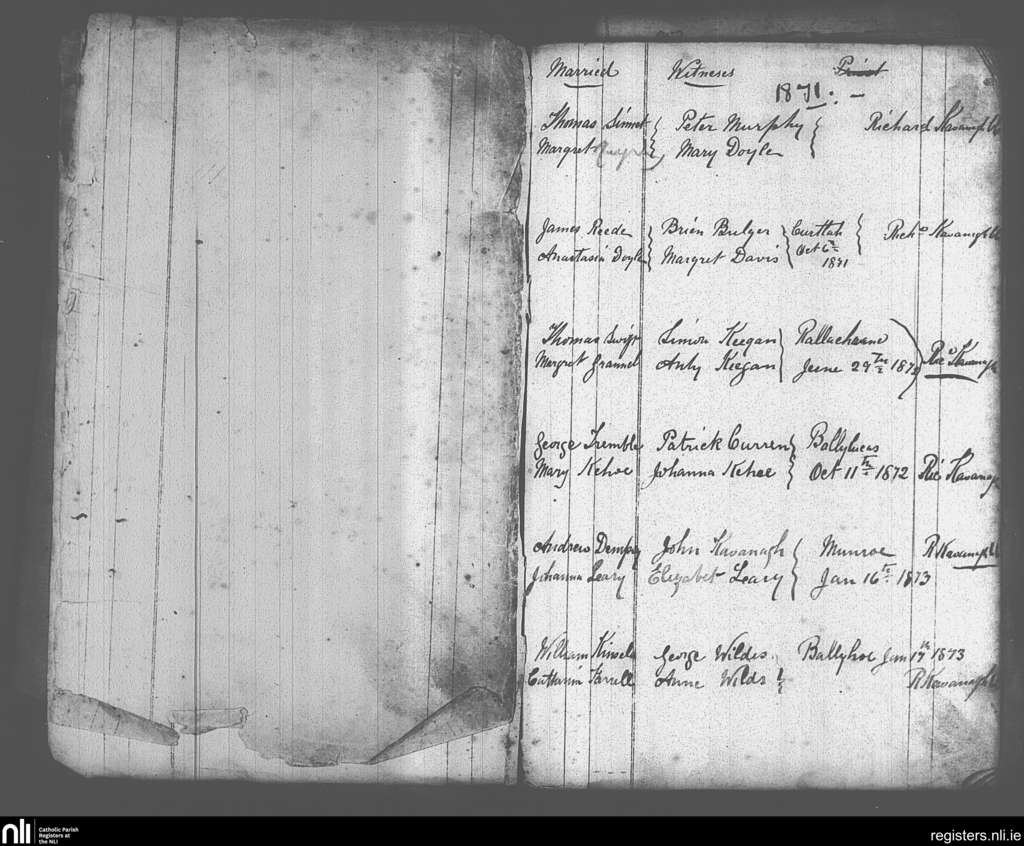 Married Witneses Priest
1871.
Thomas Sinnet Peter Murphy Richard Kavanagh
Margret Mary Doyle
James Reede Brien Bulger Curtlah Richd Kavanagh
Anastasia Doyle Margret Davis Oct 6th
1871
Thomas Swift Simon Keegan Ric Kavanagh
Margret Grannel Anty Keegan June 29th 1872
George Tremble Patrick Curren Ballylucas
Mary Kehoe Johanna Kehoe Oct 11th 1872 Ric Kavanagh
Andrew Dempsy John Kavanagh Munroe R Kavanagh
Johanna Leary Elizabet Leary Jan 16th 1873
William Kinsela George Wildes Ballyhoe Jan 17th 1873
Catharin Farrell Anne Wilds R Kavanagh
nli Catholic Parish
Registers at
the NLI
registers.nli.ie